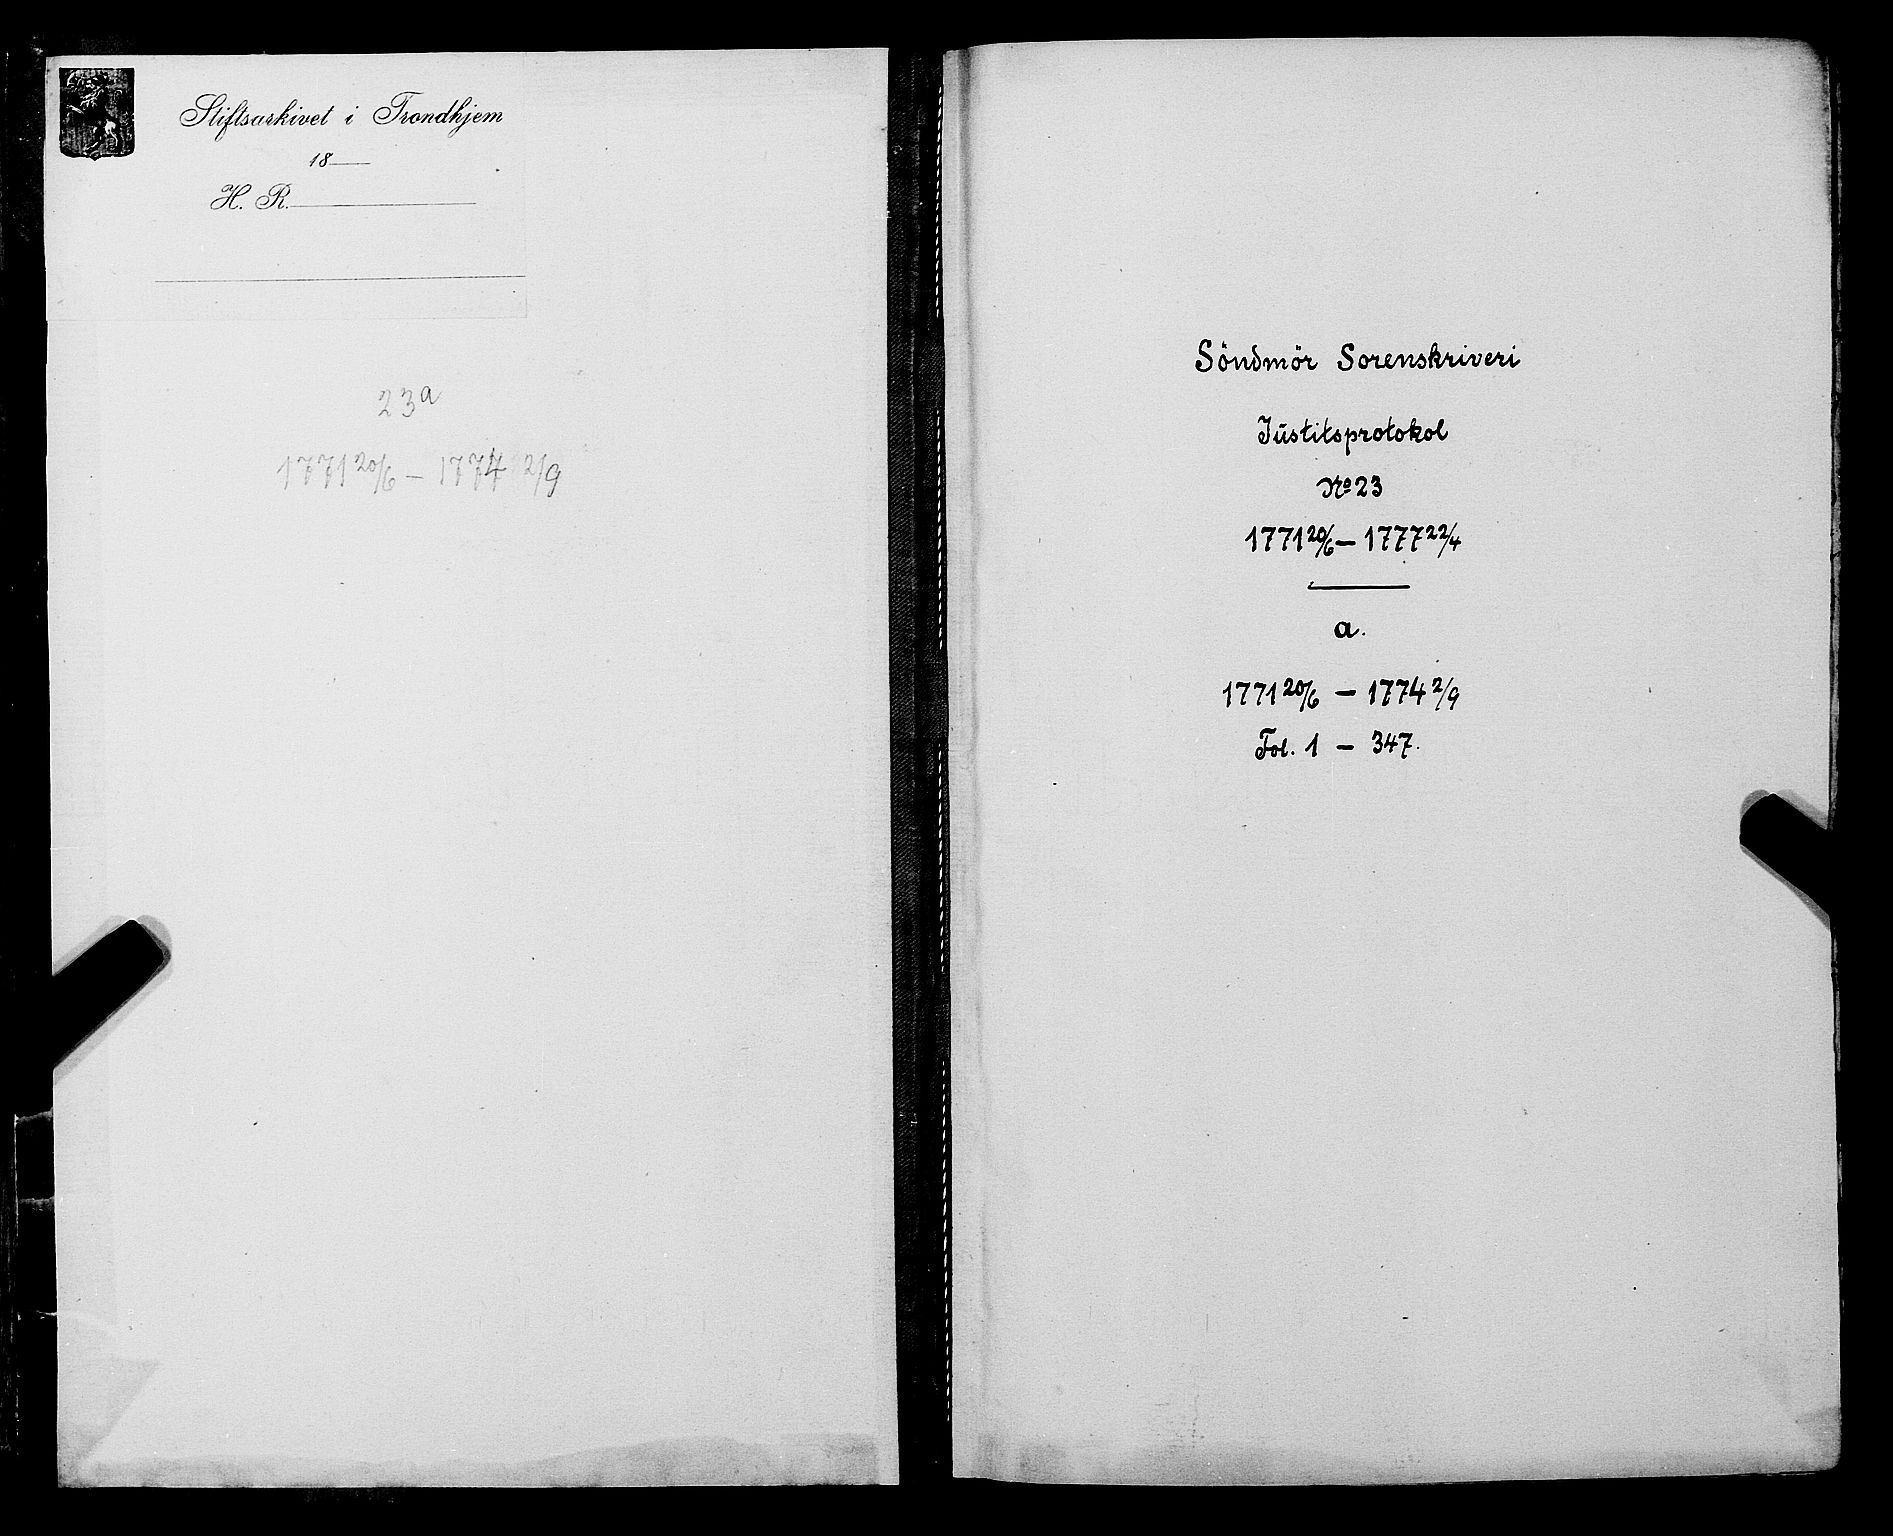 Stiftsarkivet i Trondhjem
18
H. R.
23a
1771 20/6 — 1774 2/9
Söndmör Sorenskriveri
Justitsprotokol
No 23
1771 20/6 — 1777 22/4
a.
1771 20/6 — 1774 2/9
Fol. 1 — 347.